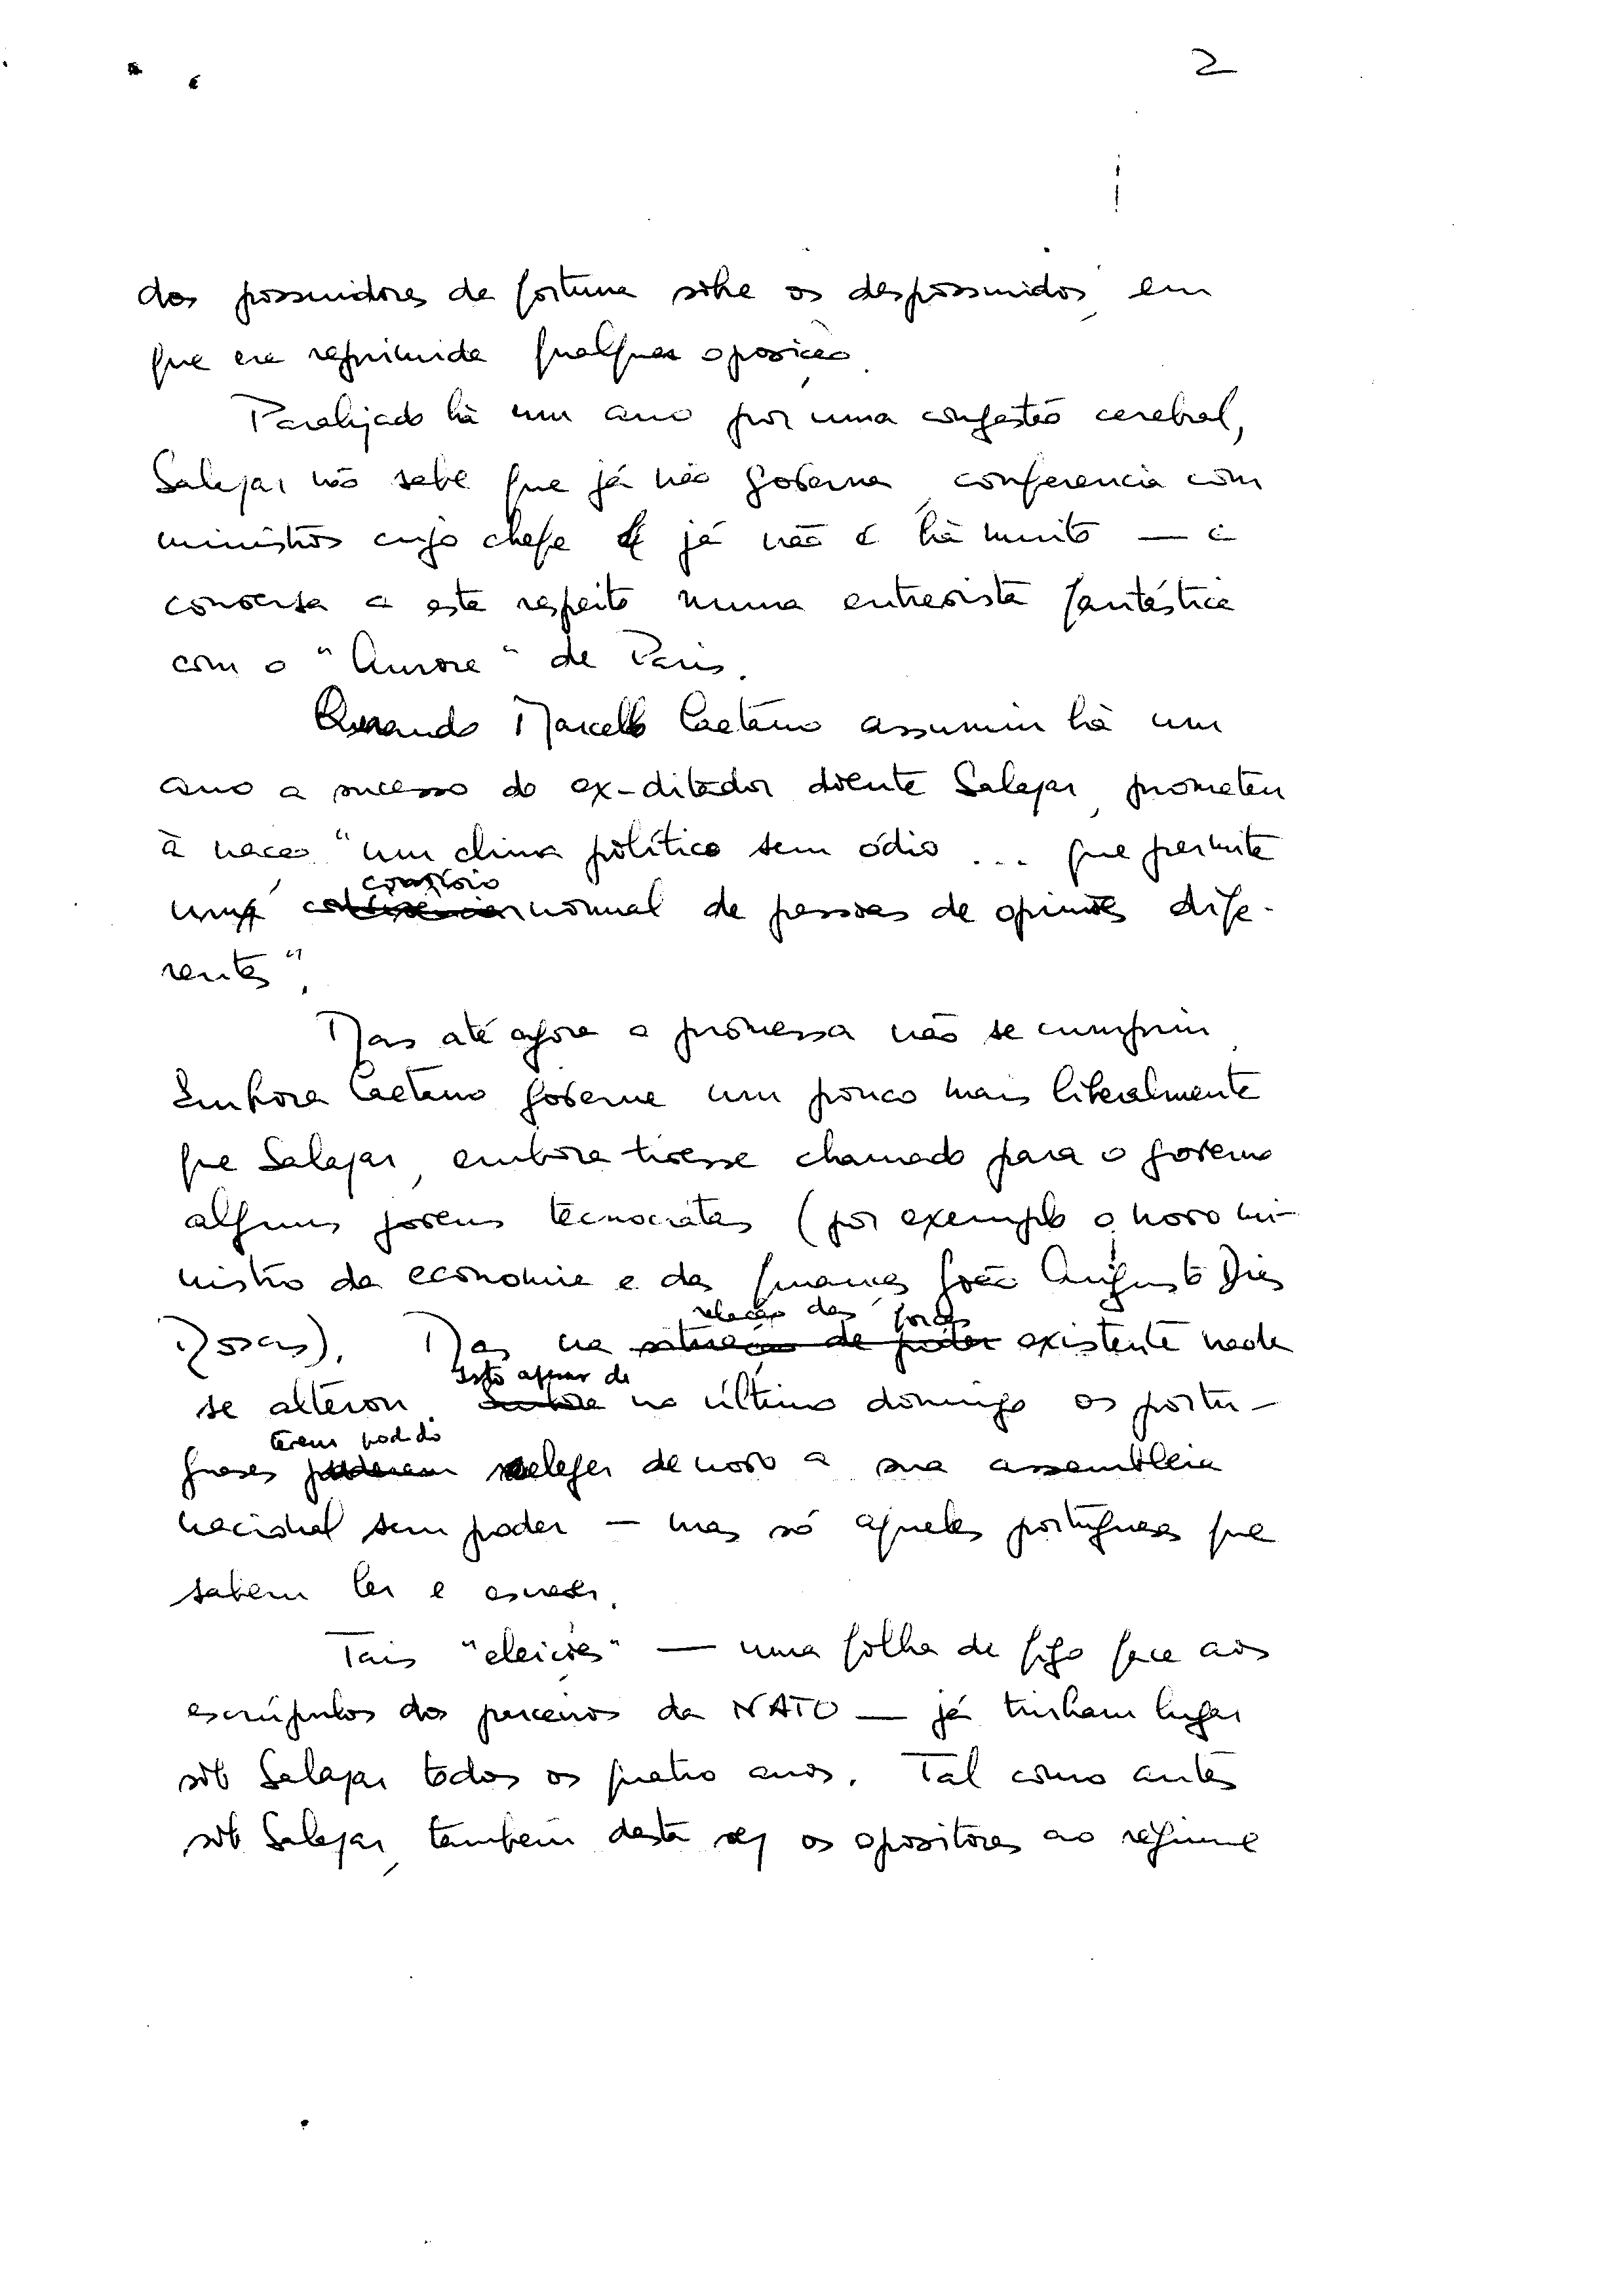 2
dos possuidores de fortuna sôbre os despossuidos, em
que era reprimida qualquer oposição.
Paralizado há um ano por uma congestão cerebral,
Salazar não sabe que já não governa, conferencia com
ministros cujo chefe já não é há muito — e
conversa a este respeito numa entrevista fantástica
com o "Aurore" de Paris.
Quando Marcello Caetano assumiu há um
ano a sucesso do ex-ditador doente Salazar, prometeu
à nação "um clima político sem ódio ... que permite
convívio
um normal de pessoas de opiniões dife-
rentes".
Mas até agora a promessa não se cumpriu.
Embora Caetano governe um pouco mais liberalmente
que Salazar, embora tivesse chamado para o governo
alguns jovens tecnocratas (por exemplo o novo mi-
nistro da economia e das finanças João Augusto Dias
relação das forças
Rosas). Mas na situação de poder existente nada
Isto apesar de
se alterou. Embora no último domingo os portu-
terem podido
gueses puderam eleger de novo a sua assembleia
nacional sem poder — mas só aqueles portugueses que
sabem ler e escrever.
Tais "eleições" — uma folha de figo face aos
escrúpulos dos parceiros da NATO — já tinham lugar
sob Salazar todos os quatro anos. Tal como antes
sob Salazar, também desta vez os opositores ao regime